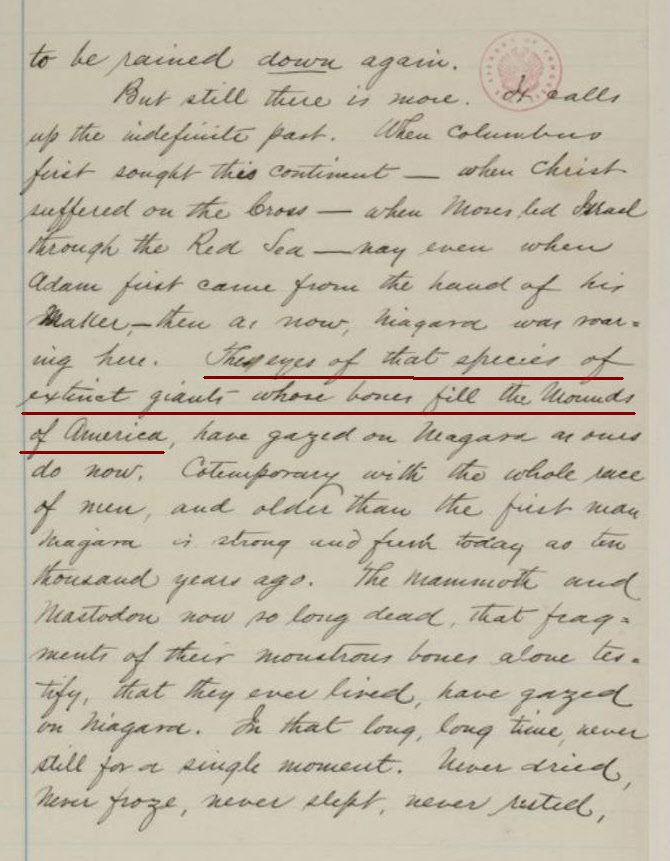 to be rained down again.
But still there is more. It calls
up the indefinite past. When Columbus
first sought this continent — when Christ
suffered on the Cross — when Moses led Israel
through the Red Sea — nay even when
Adam first came from the hand of his
Maker — then as now, Niagara was roar=
ing here. The eyes of that species of
extinct giants whose bones fill the Mounds
of America, have gazed on Niagara as ours
do now. Cotemporary with the whole race
of men, and older than the first man
Niagara is strong and fresh today as ten
thousand years ago. The Mammoth and
Mastodon now so long dead, that frag=
ments of their monstrous bones alone tes=
tify, that they ever lived, have gazed
on Niagara. In that long, long time, never
still for a single moment. Never dried,
never froze, never slept, never rested,